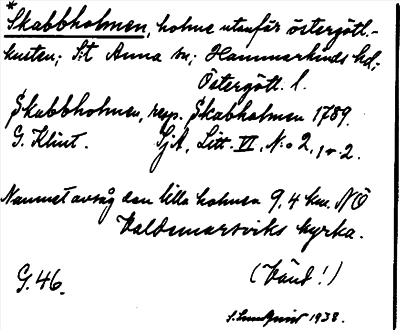 *Skabbholmen, holme utanför östergötl.-
kusten; S:t Anna sn; Hammarkinds hd;
Östergötl. l.
Skabbholmen, resp. Skabholmen 1789.
G. Klint. SjA, Litt. VI, N:o 2, 1 o. 2.
Namnet avsåg den lilla holmen 9,4 km. NÖ
Valdemarsviks kyrka.
G. 46. (Vänd!)
S. Lundqvist 1938.